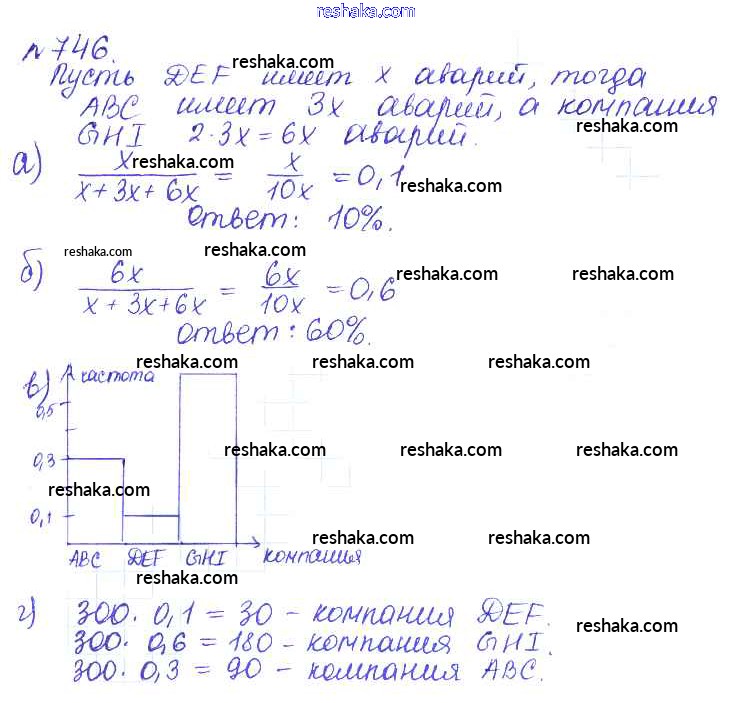 reshaka.com
№746.
reshaka.com
Пусть DEF имеет x аварий, тогда
ABC имеет 3x аварий, а компания
reshaka.com
GHI 2·3x=6x аварий.
reshaka.com
а) x/(x+3x+6x) = x/10x = 0,1
reshaka.com
Ответ: 10%.
reshaka.com reshaka.com
б) 6x/(x+3x+6x) = 6x/10x = 0,6
reshaka.com reshaka.com
Ответ: 60%.
reshaka.com reshaka.com reshaka.com
в) частота
0,5
reshaka.com reshaka.com reshaka.com
0,3
reshaka.com
0,1
reshaka.com reshaka.com
ABC DEF GHI компания
reshaka.com
г) 300·0,1=30 - компания DEF.
reshaka.com
300·0,6=180 - компания GHI.
300·0,3=90 - компания ABC.